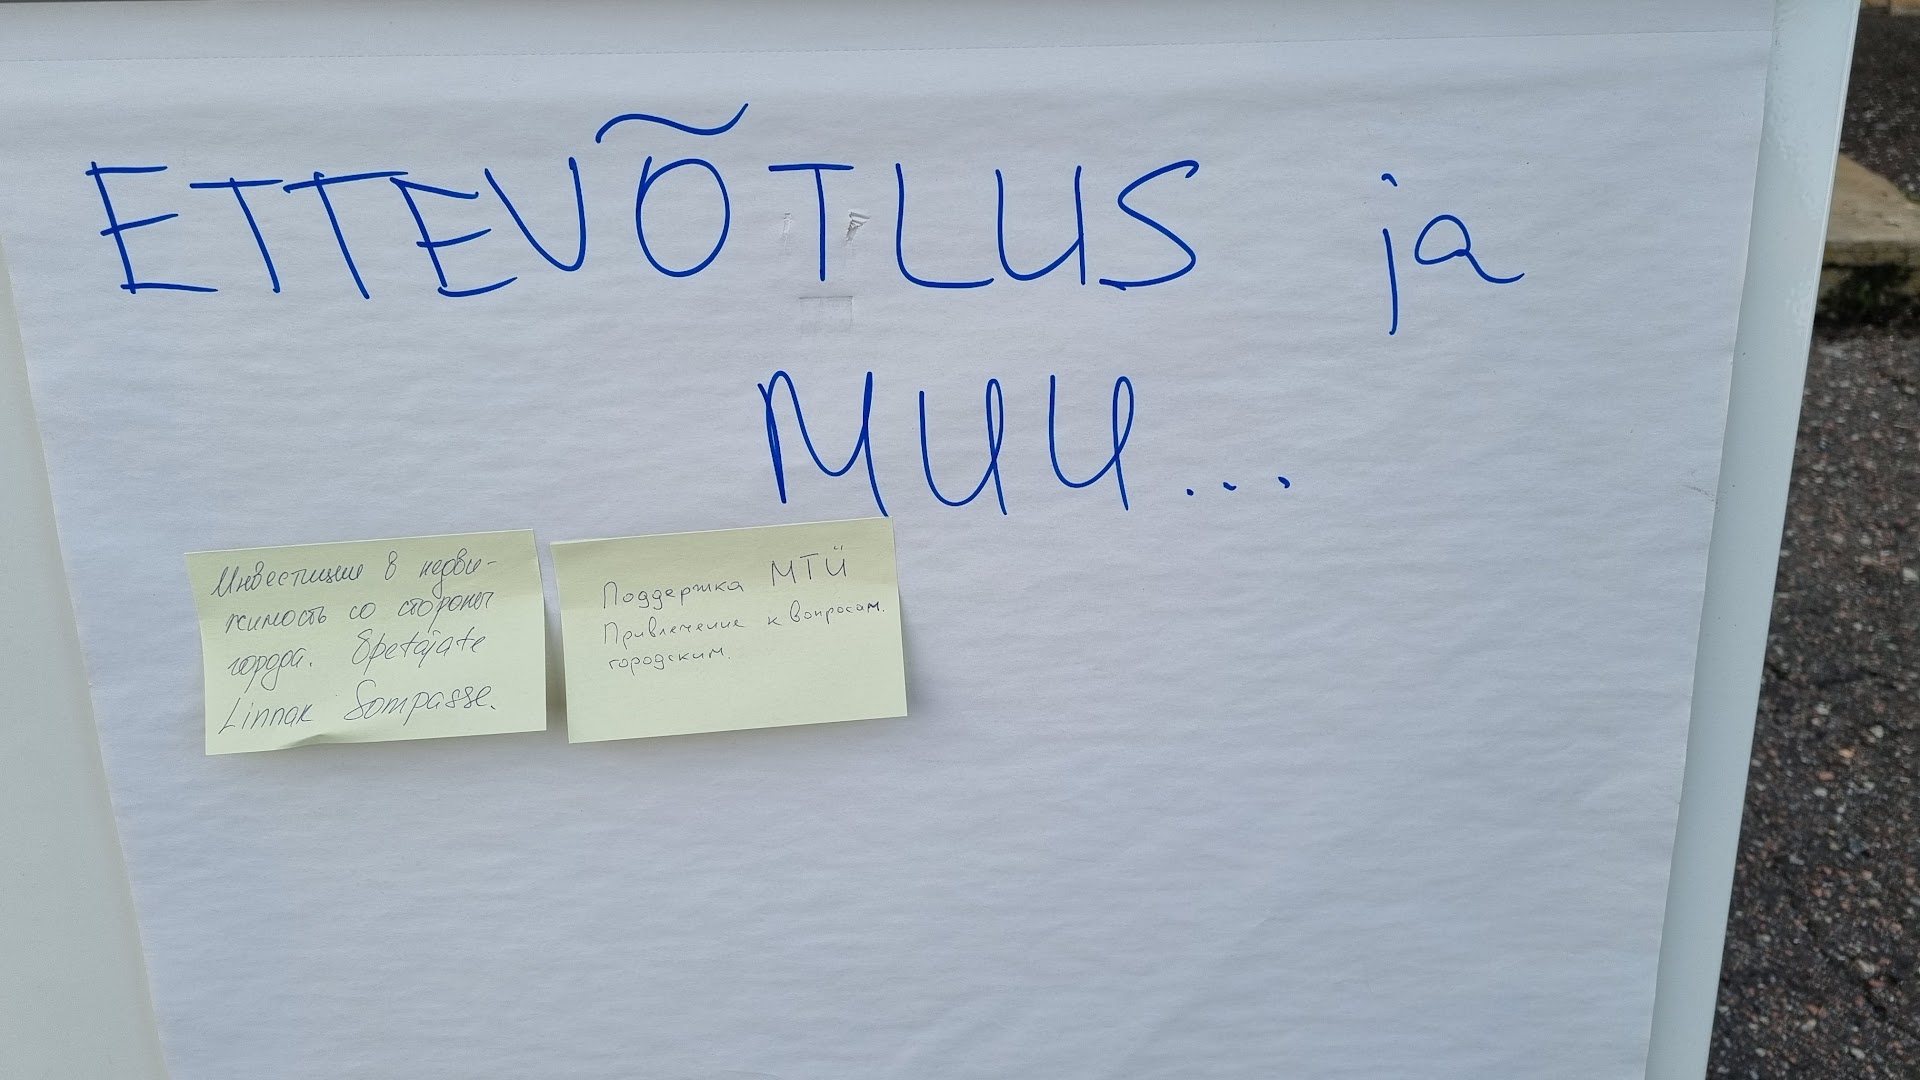 ETTEVÕTLUS ja
MUU...
Инвестиции в недви-
жимость со стороны
города. Õpetajate
Linnak Sompasse.
Поддержка МТÜ
Привлечение к вопросам.
городским.